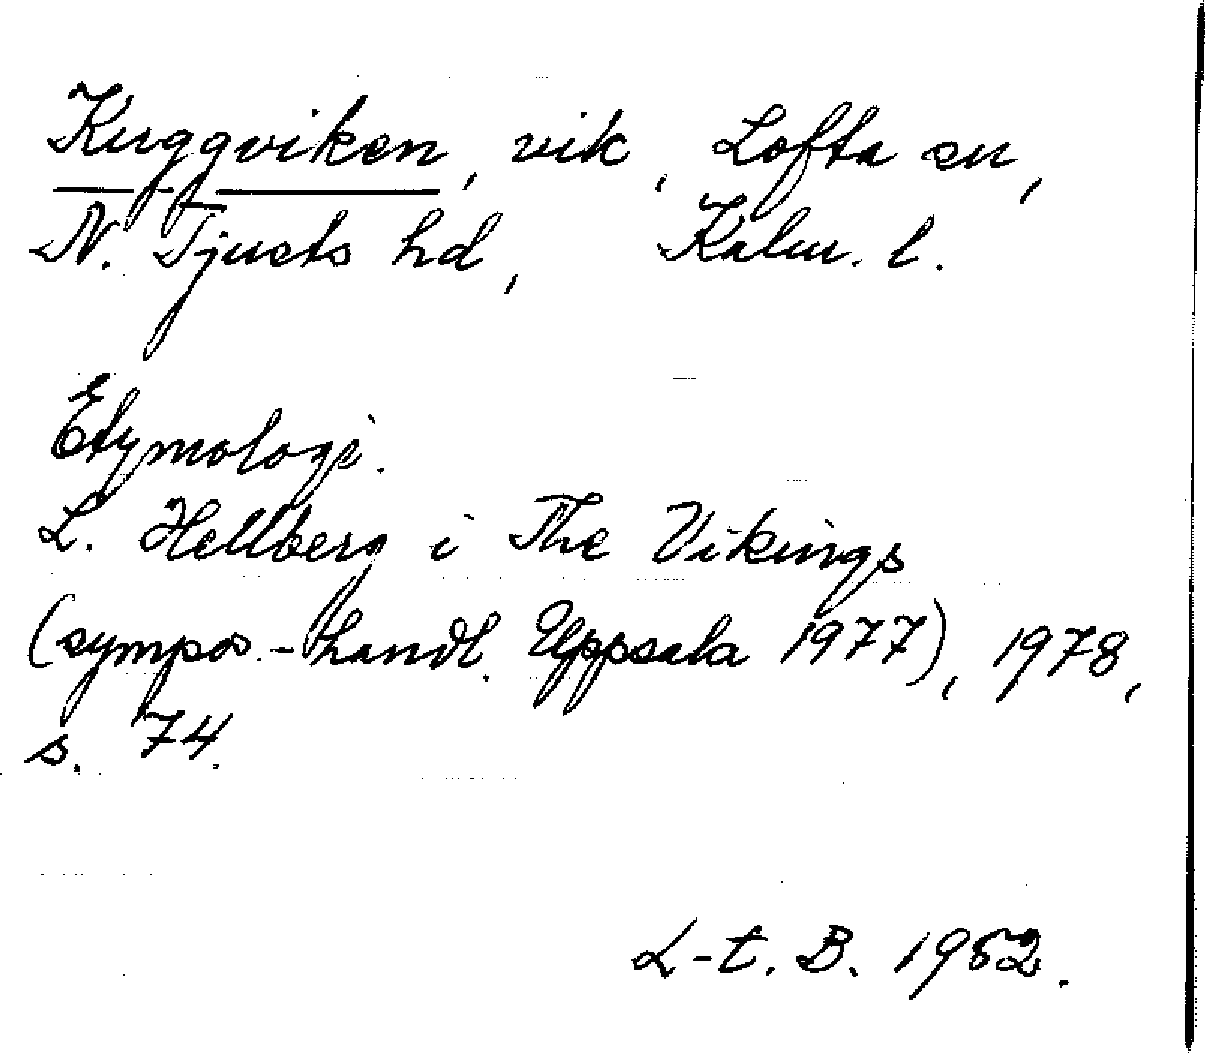 Kuggviken, vik, Lofta sn,
N. Tjusts hd, Kalm. l.
Etymologi.
L. Hellberg i The Vikings
(sympos.-handl. Uppsala 1977), 1978,
s. 74.
L-t. B. 1982.